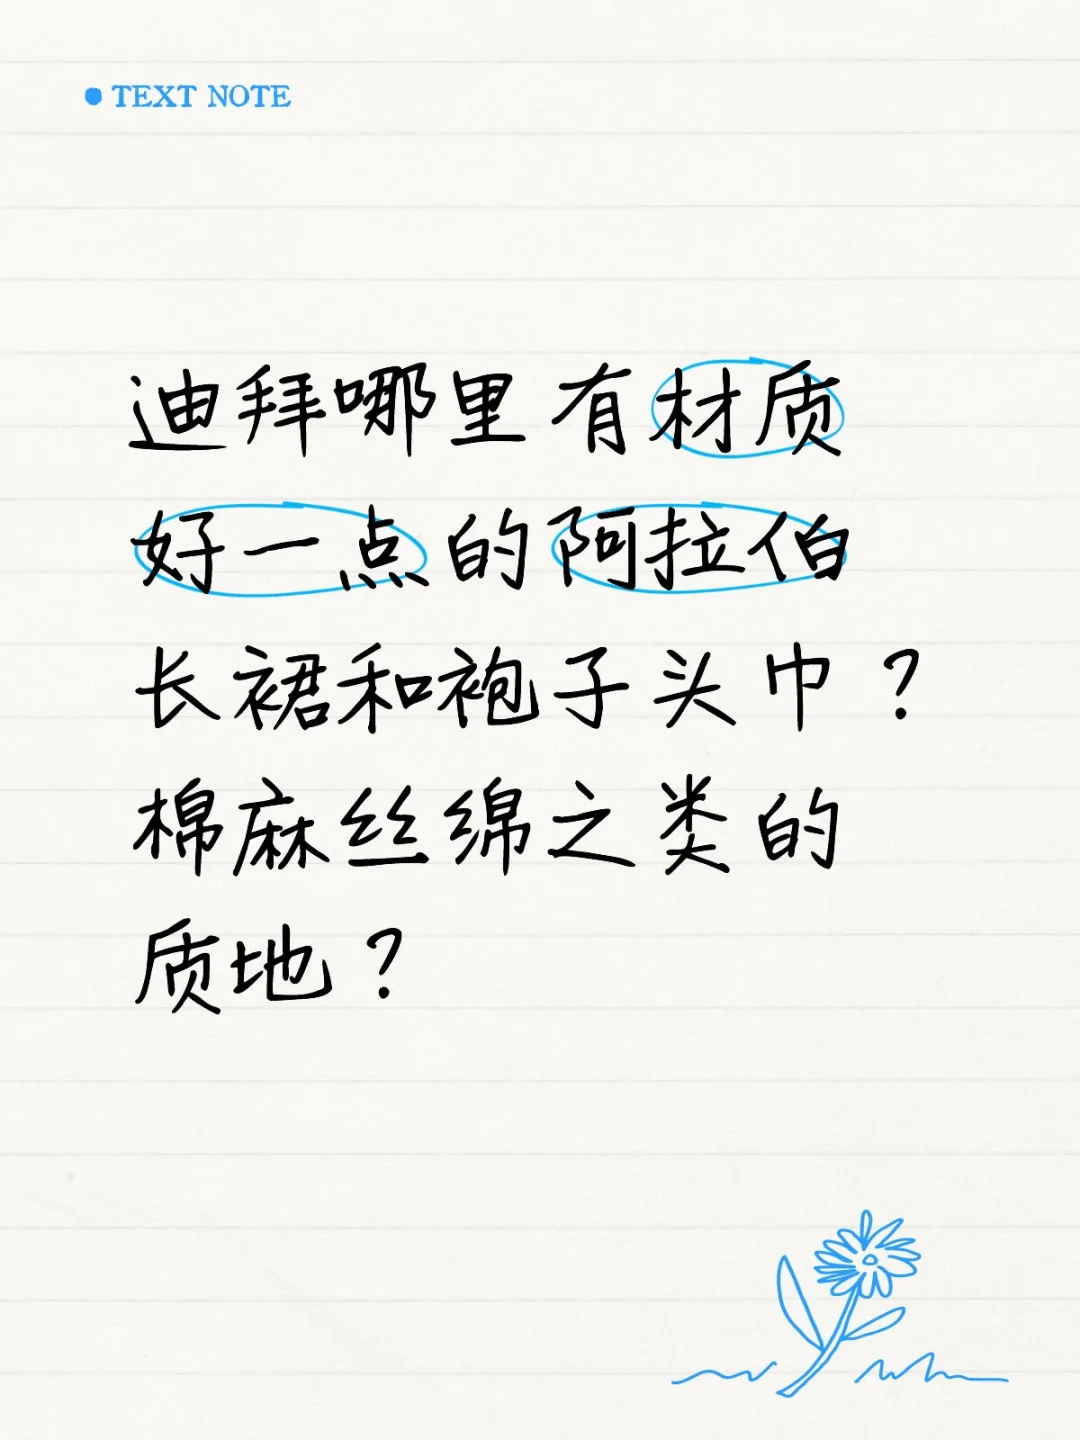 TEXT NOTE
迪拜哪里有材质
好一点的阿拉伯
长裙和袍子头巾？
棉麻丝绵之类的
质地？